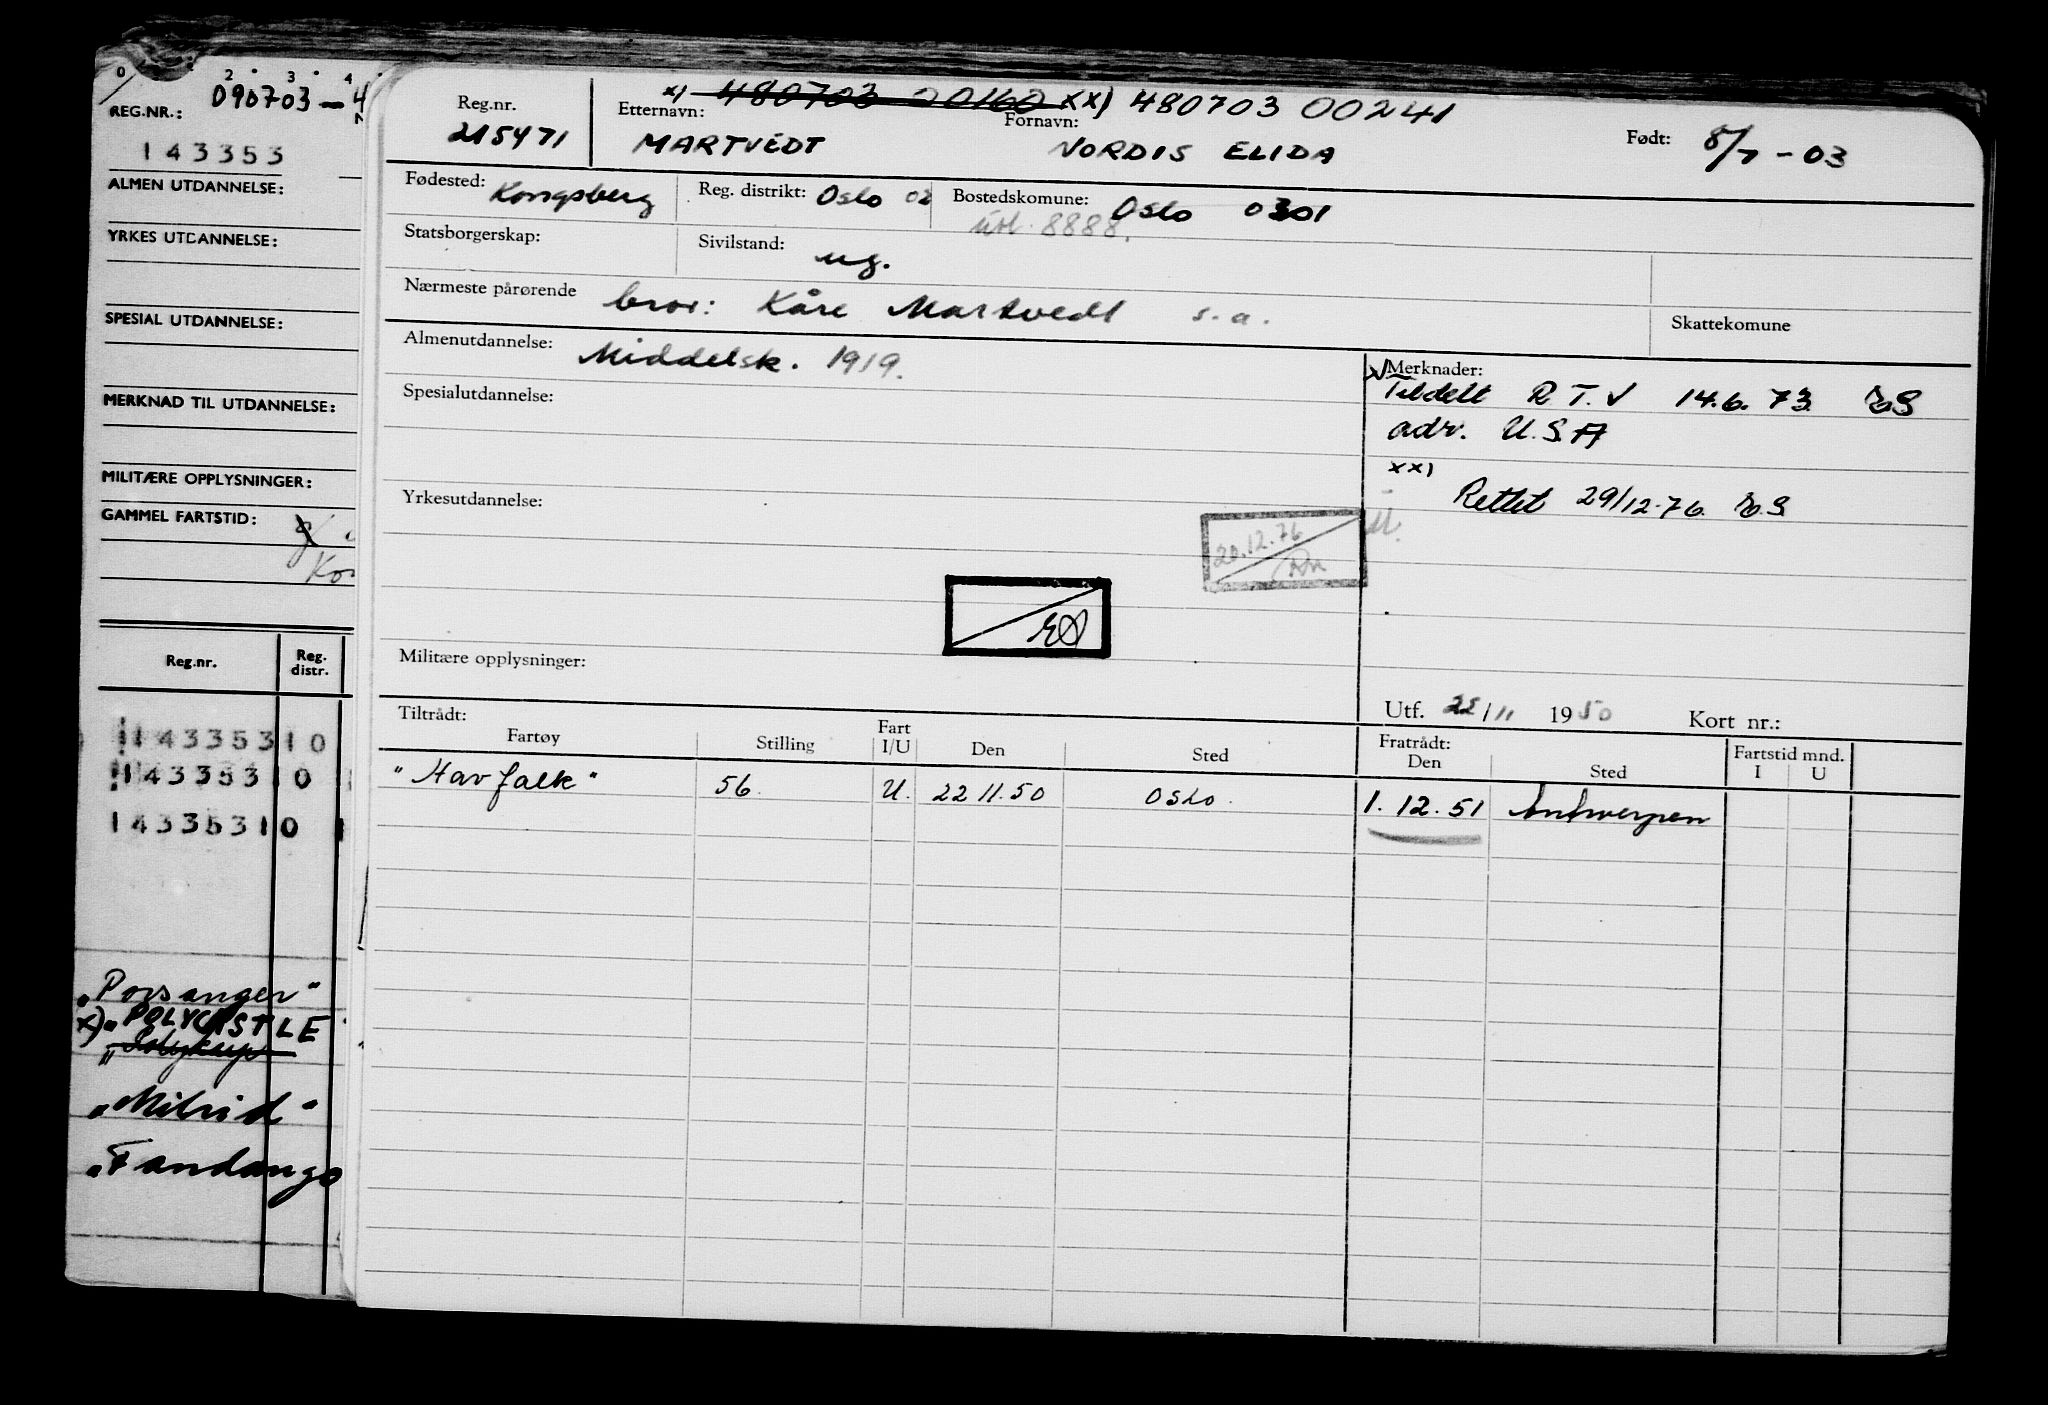 0 2 3 4
090703-4
REG.NR.:
143353
ALMEN UTDANNELSE:
YRKES UTDANNELSE:
SPESIAL UTDANNELSE:
MERKNAD TIL UTDANNELSE:
MILITÆRE OPPLYSNINGER:
GAMMEL FARTSTID:
Reg.nr. Reg. distr.
143353 10
143353 10
143353 10
"Porsanger"
x) "POLYCASTLE
"Mibrid"
"Fandango
x) 480703 00160 xx) 480703 00241
Reg.nr. Etternavn: Fornavn: Født: 8/7-03
215471 MARTVEDT NORDIS ELIDA
Fødested: Kongsberg Reg. distrikt: Oslo 02 Bostedskomune: Oslo 0301
utl. 8888.
Statsborgerskap: Sivilstand: ug.
Nærmeste pårørende bror: Kåre Martvedt s.a.
Skattekomune
Almenutdannelse: Middelsk. 1919.
Merknader:
x) Tildelt R T.V 14.6.73 ES
adr. U.S.A
xx)
Rettet 29/12-76. E.S.
Spesialutdannelse:
Yrkesutdannelse:
20.12.76
Militære opplysninger:
Utf. 22/11 1950 Kort nr.:
Tiltrådt: Fratrådt: Fartstid mnd.
Fartøy Stilling Fart I/U Den Sted Den Sted I U
"Havfalk" 56. U. 22 11.50 Oslo. 1.12.51 Antwerpen